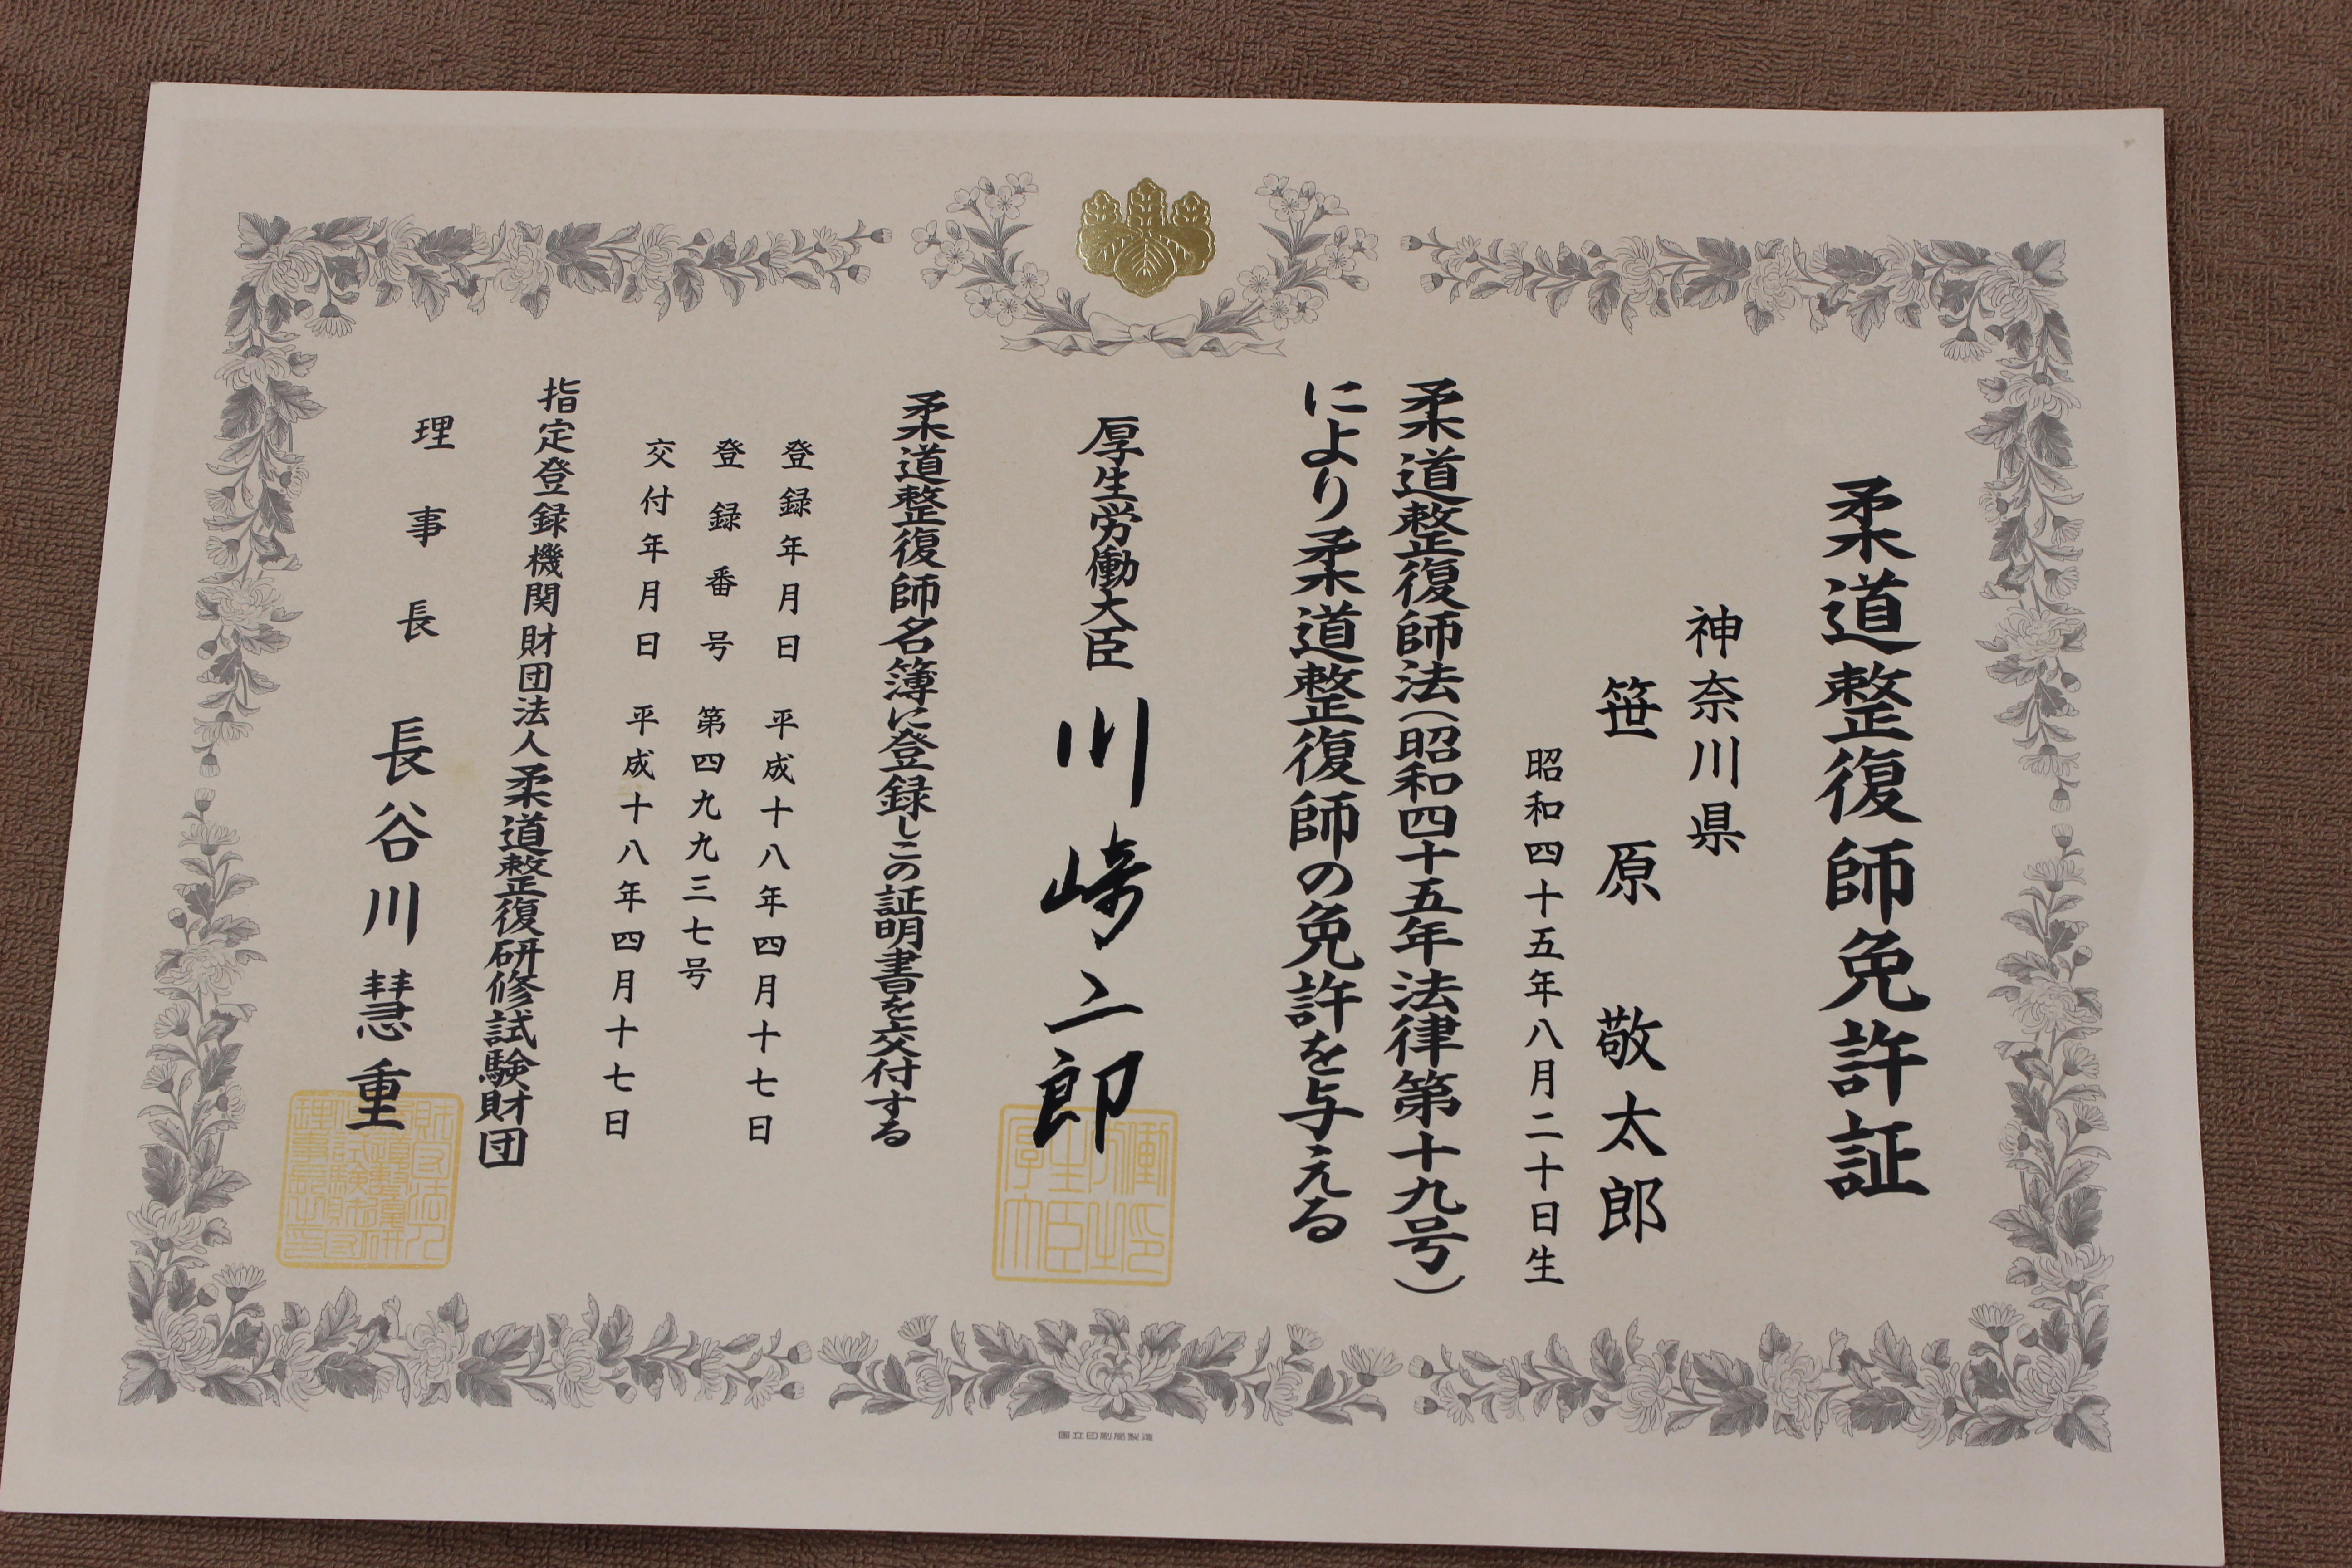 柔道整復師免許証
神奈川県
笹原敬太郎
昭和四十五年八月二十日生
柔道整復師法(昭和四十五年法律第十九号)
により柔道整復師の免許を与える
厚生労働大臣 川崎二郎
柔道整復師名簿に登録しこの証明書を交付する
登録年月日 平成十八年四月十七日
登録番号 第四九九三七号
交付年月日 平成十八年四月十七日
指定登録機関財団法人柔道整復研修試験財団
理事長 長谷川慧重
国立印刷局製造